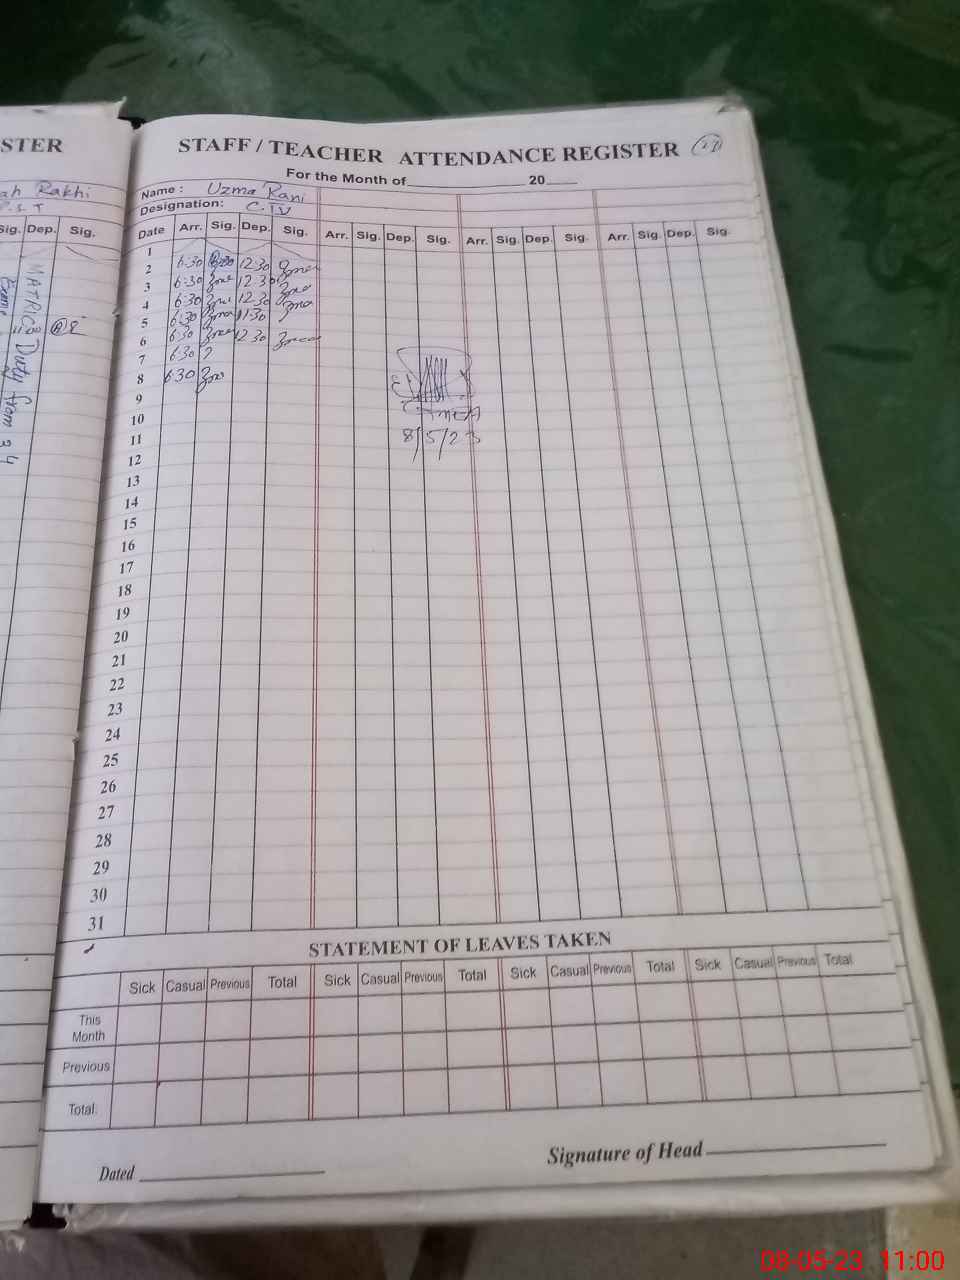 STER
STAFF / TEACHER ATTENDANCE REGISTER
For the Month of 20
ah Rakhi
Name : Uzma Rani
Designation: C.T
Sig. Dep. Sig.
Date Arr. Sig. Dep. Sig. Arr. Sig. Dep. Sig. Arr. Sig. Dep. Sig. Arr. Sig. Dep. Sig.
MATRIC Duty from
1
2 6:30 12:30
3 6:30 12:30
4 6:30 12:30
5 6:30 11:30
6 6:30 12:30
7 6:30
8 6:30
9
10
8/5/23
11
12
13
14
15
16
17
18
19
20
21
22
23
24
25
26
27
28
29
30
31
STATEMENT OF LEAVES TAKEN
Sick Casual Previous Total Sick Casual Previous Total Sick Casual Previous Total Sick Casual Previous Total
This
Month
Previous
Total.
Dated Signature of Head
08-05-23 11:00